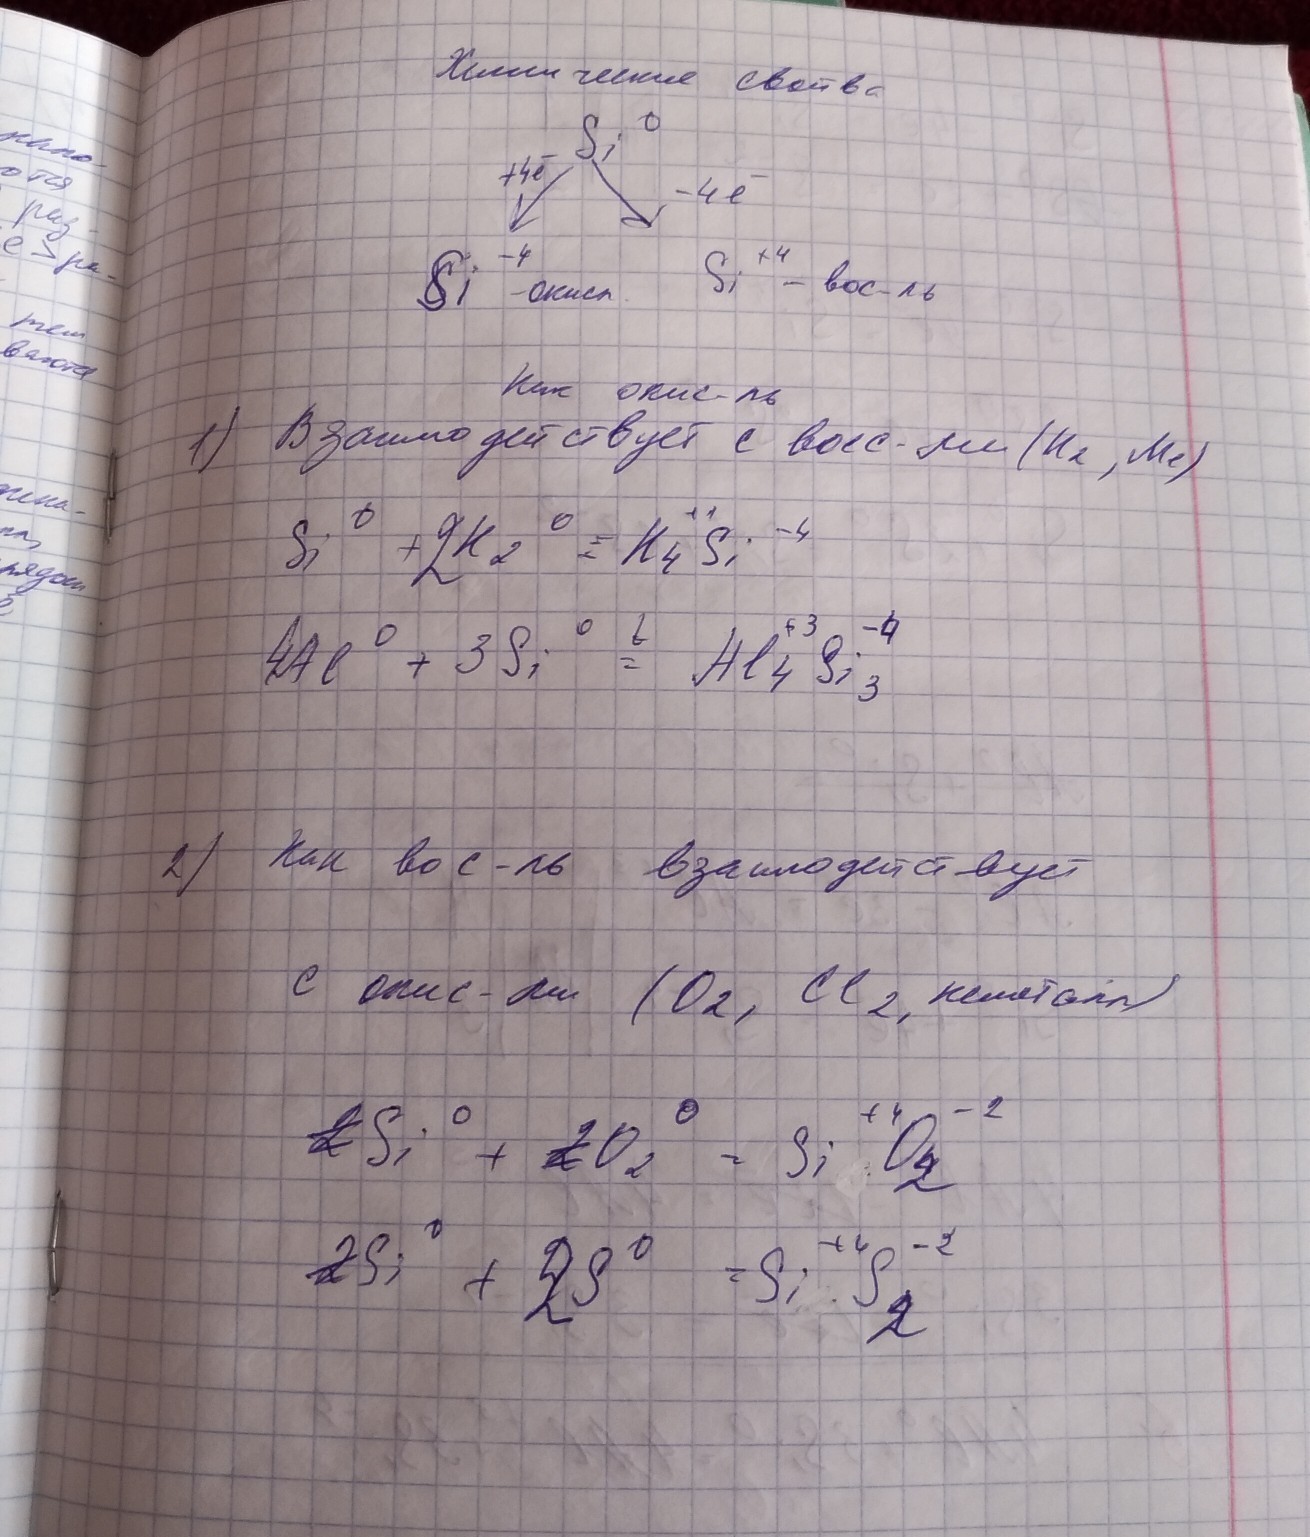 Химические свойтва
Si 0
+4e-
-4e-
Si -4 -окисл.
Si +4 - вос-ль
Как окис-ль
1) Взаимодействует с восс-ми (H2, Me)
Si 0 + 2H2 0 = H4 +1 Si -4
4Al 0 + 3Si 0 t= Al4 +3 Si3 -4
2) Как вос-ль взаимодействует
с окис-ми (O2, Cl2, неметалл)
Si 0 + O2 0 = Si +4 O2 -2
Si 0 + 2S 0 = Si +4 S2 -2